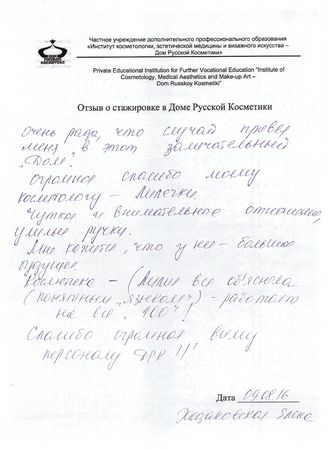 Частное учреждение дополнительного профессионального образования
«Институт косметологии, эстетической медицины и визажного искусства –
Дом Русской Косметики»
Private Educational Institution for Further Vocational Education "Institute of
Cosmetology, Medical Aasthetics and Make-up Art –
Dom Russkoy Kosmetiki"
Отзыв о стажировке в Доме Русской Косметики
Очень рада, что случай привёл
меня в этот замечательный
„Дом".
Огромное спасибо моему
косметологу –
Чуткое и внимательное отношение,
умелые ручки.
Мне кажется, что у неё – большое
будущее.
– ( все
(понятным „языком") – работает
на все „100"!
Спасибо огромное всему
персоналу ДРК !!!
Дата 09.08.16
Елена